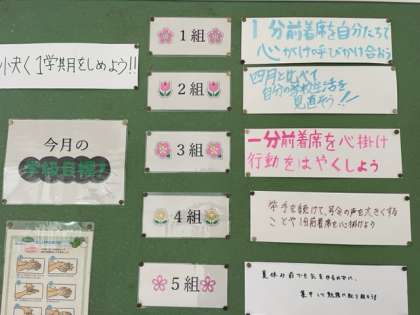 小夫く1学期をしめよう!!
今月の
学級目標!
1組
1分前着席を自分たちで
心がけの呼びかけ合おう
2組
四月と比べて
自分の学校生活を
見直そう!!
3組
一分前着席を心掛け
行動をはやくしよう
4組
挙手を続けて、号令の声を大きくする
ことや1分前着席を心掛けよう
5組
夏休み前で
集中して勉強に取り組もう